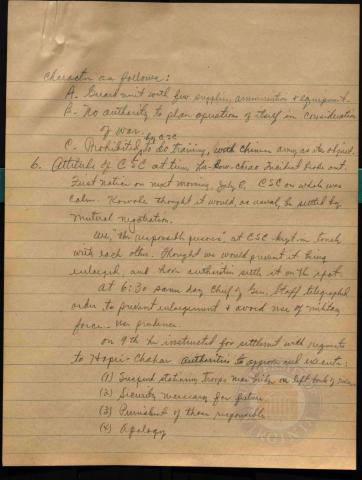 character as follows:
A. Guard unit with few supplies, ammunition & equipment.
B. No authority to plan operations of itself in consideration
of war.
by CSC
C. Prohibited to do training, with Chinese army as its object.
6. Attitude of CSC at time Lu-Kow-Chiao Incident broke out.
First notice on next morning, July 8, CSC on whole was
calm. thought it would, as usual, be settled by
mutual negotiation.
We, "the responsible persons", at CSC kept in touch
with each other. Thought we would prevent it being
enlarged, and have authorities settle it on the spot.
At 6:30 same day Chief of Gen. Staff telegraphed
order to prevent enlargement & avoid use of military
force.
On 9th he instructed for settlement with regards
to Hopei-Chahar authorities to approve and execute:
(1) Suspend stationing troops near bridge on left bank of
(2) Security necessary for future
(3) Punishment of those responsible
(4) Apology